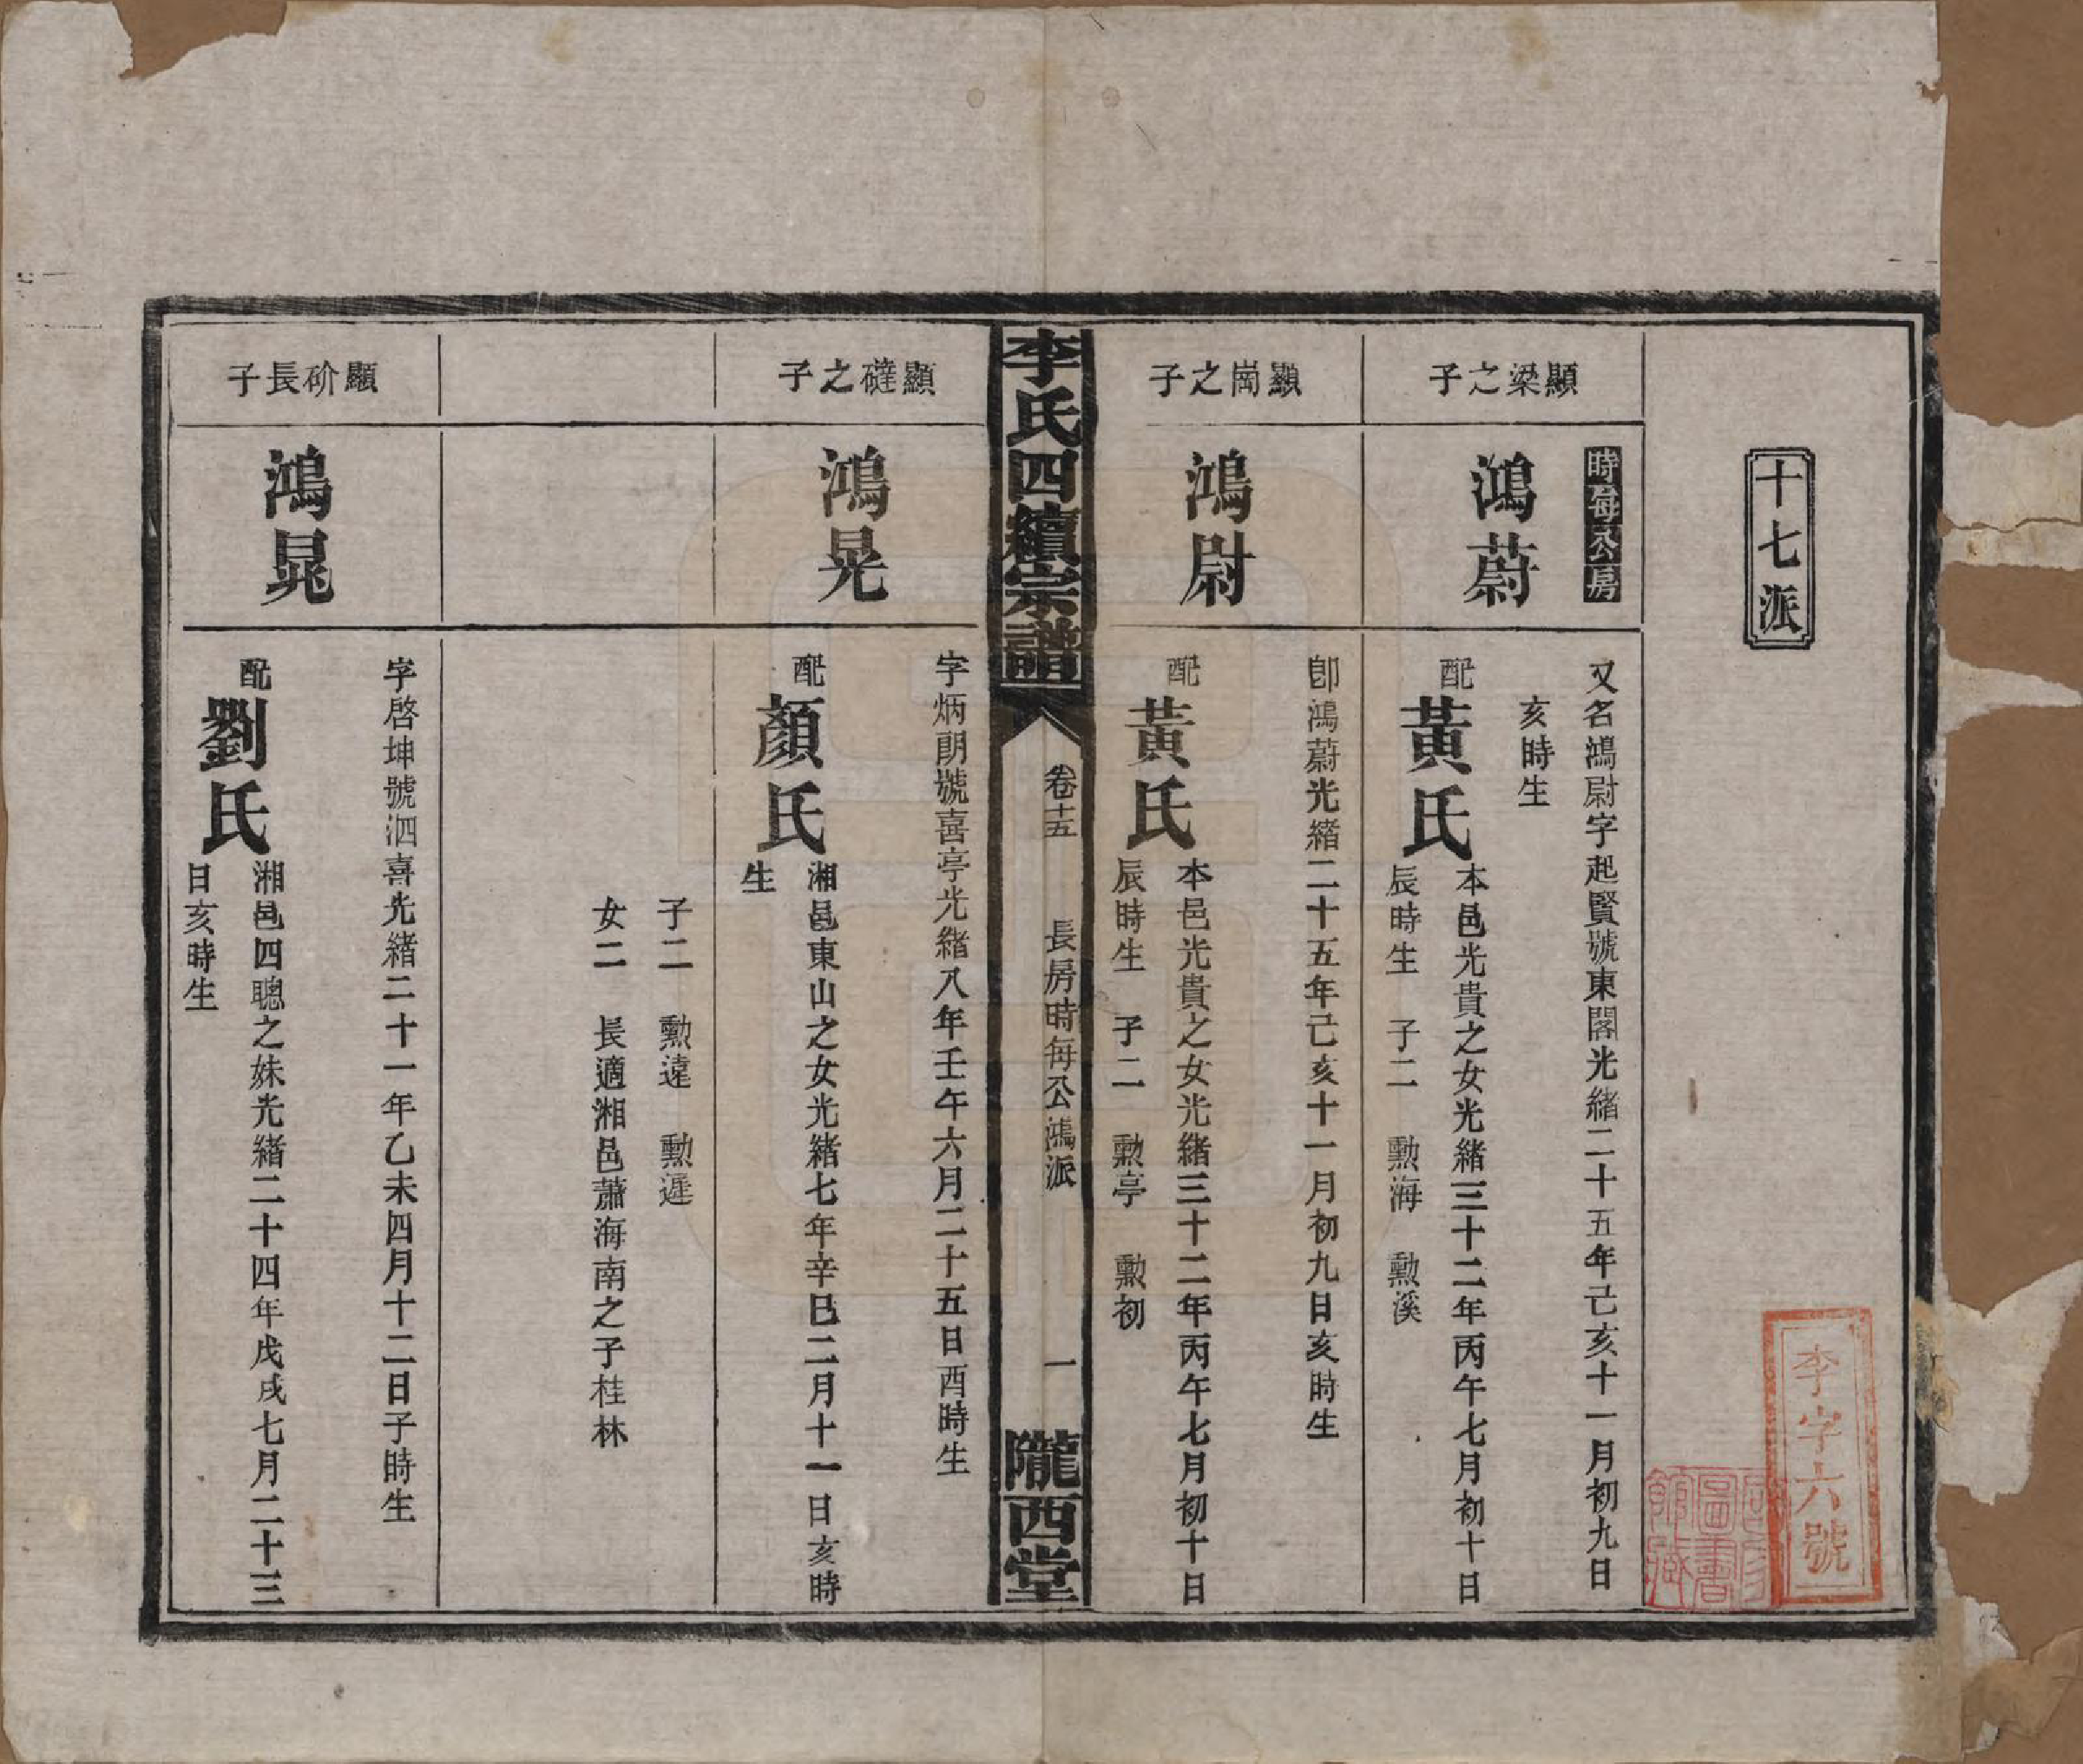 十七派
李字六號
國家圖書館藏
顯梁之子
時每公房
鴻蔚
又名鴻尉字起賢號東閣光緒二十五年己亥十一月初九日
亥時生
配
黃氏
本邑光貴之女光緒三十二年丙午七月初十日
辰時生 子二 勳海 勳溪
顯崗之子
鴻尉
卽鴻蔚光緒二十五年己亥十一月初九日亥時生
配
黃氏
本邑光貴之女光緒三十二年丙午七月初十日
辰時生 子二 勳亭 勳初
李氏四續宗譜
卷十五
長房時每公鴻派
一
隴西堂
顯礈之子
鴻晃
字炳朗號喜亭光緒八年壬午六月二十五日酉時生
配
顏氏
湘邑東山之女光緒七年辛巳二月十一日亥時
生
子二 勳遠 勳遲
女二 長適湘邑蕭海南之子桂林
顯砎長子
鴻晁
字啓坤號泗喜光緒二十一年乙未四月十二日子時生
配
劉氏
湘邑四聰之妹光緒二十四年戊戌七月二十三
日亥時生